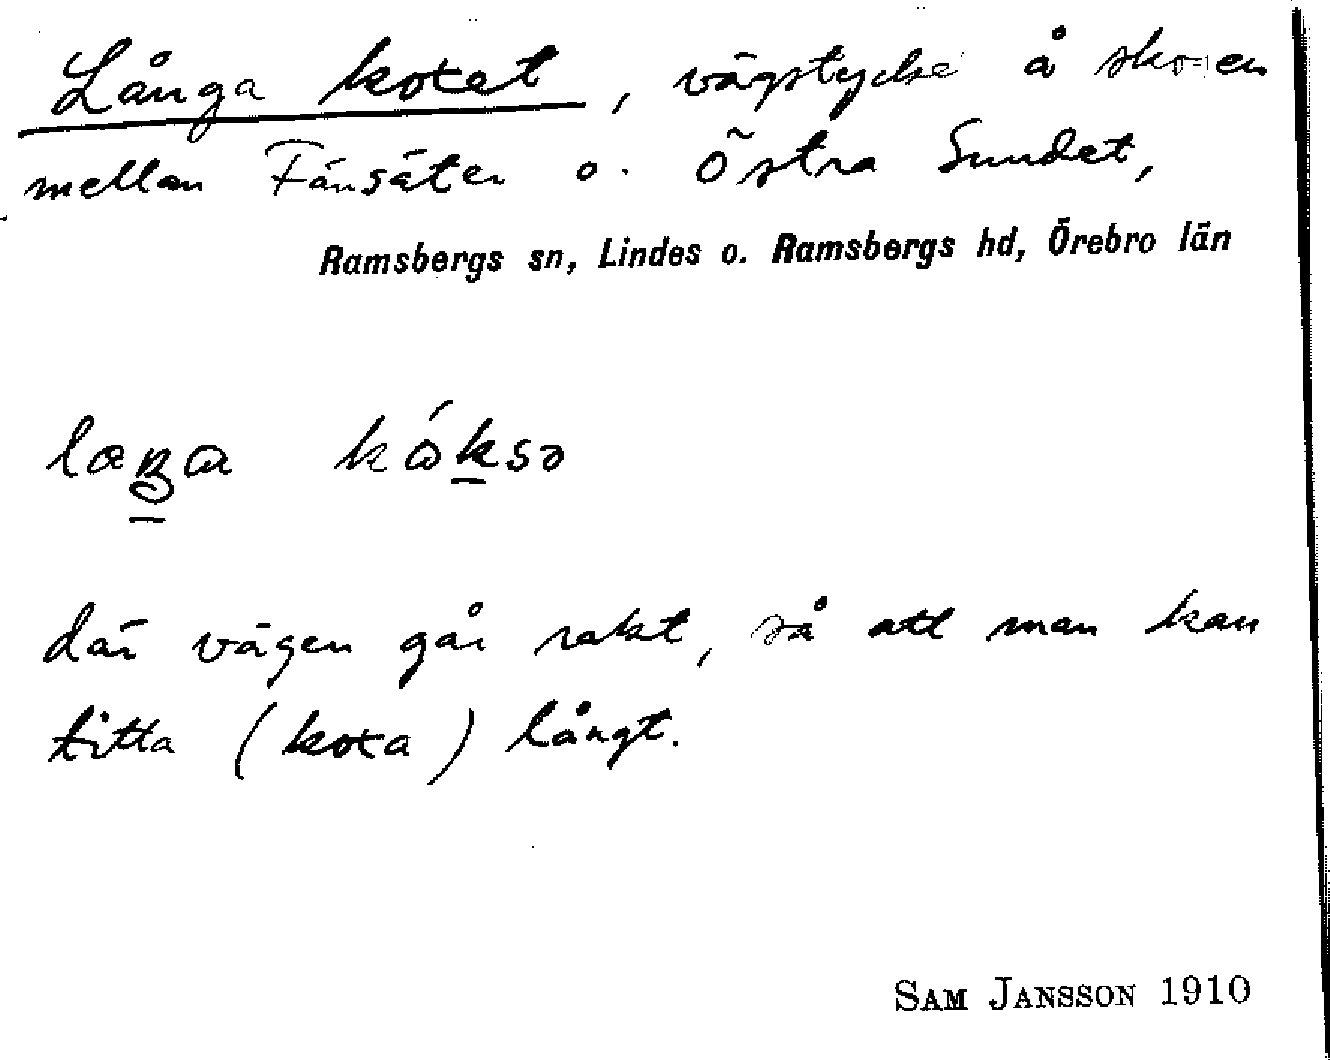 Långa koxet, vägstycke å skogen
mellan Fänsäter o. Östra Sundet,
Ramsbergs sn, Lindes o. Ramsbergs hd, Örebro län
där vägen går rakt, så att man kan
titta (koxa) långt.
SAM JANSSON 1910